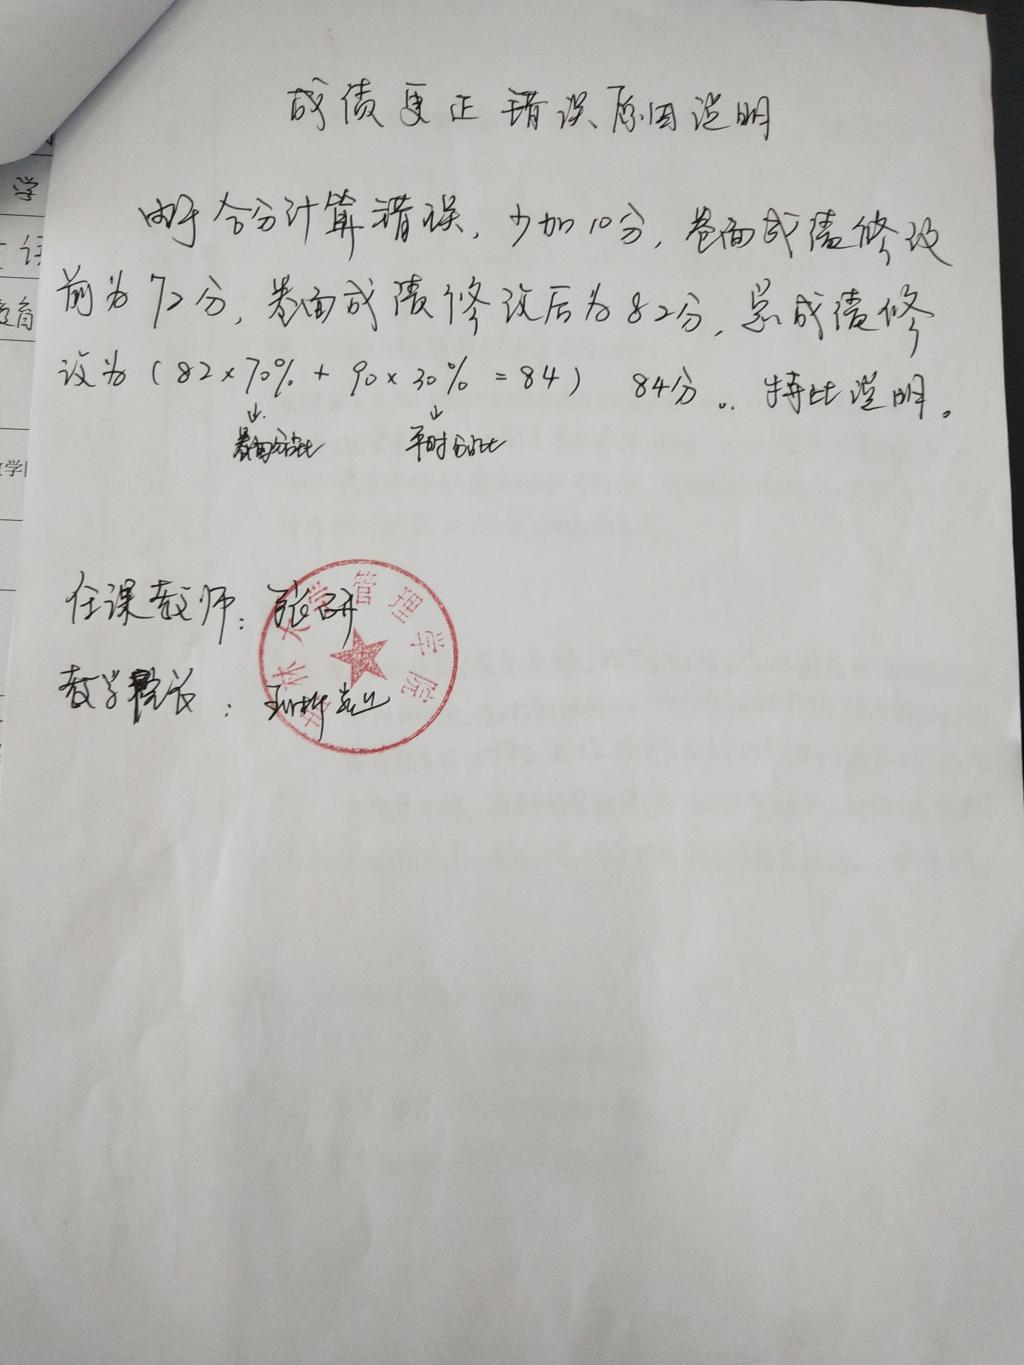 成绩更正错误原因说明
由于合分计算错误，少加10分，卷面成绩修改
前为72分，卷面成绩修改后为82分，总成绩修
改为（82×70% + 90×30% = 84） 84分。特此说明。
↓ ↓
卷面分占比 平时分占比
任课教师：
教学院长：
吉林大学管理学院
学
育
教学